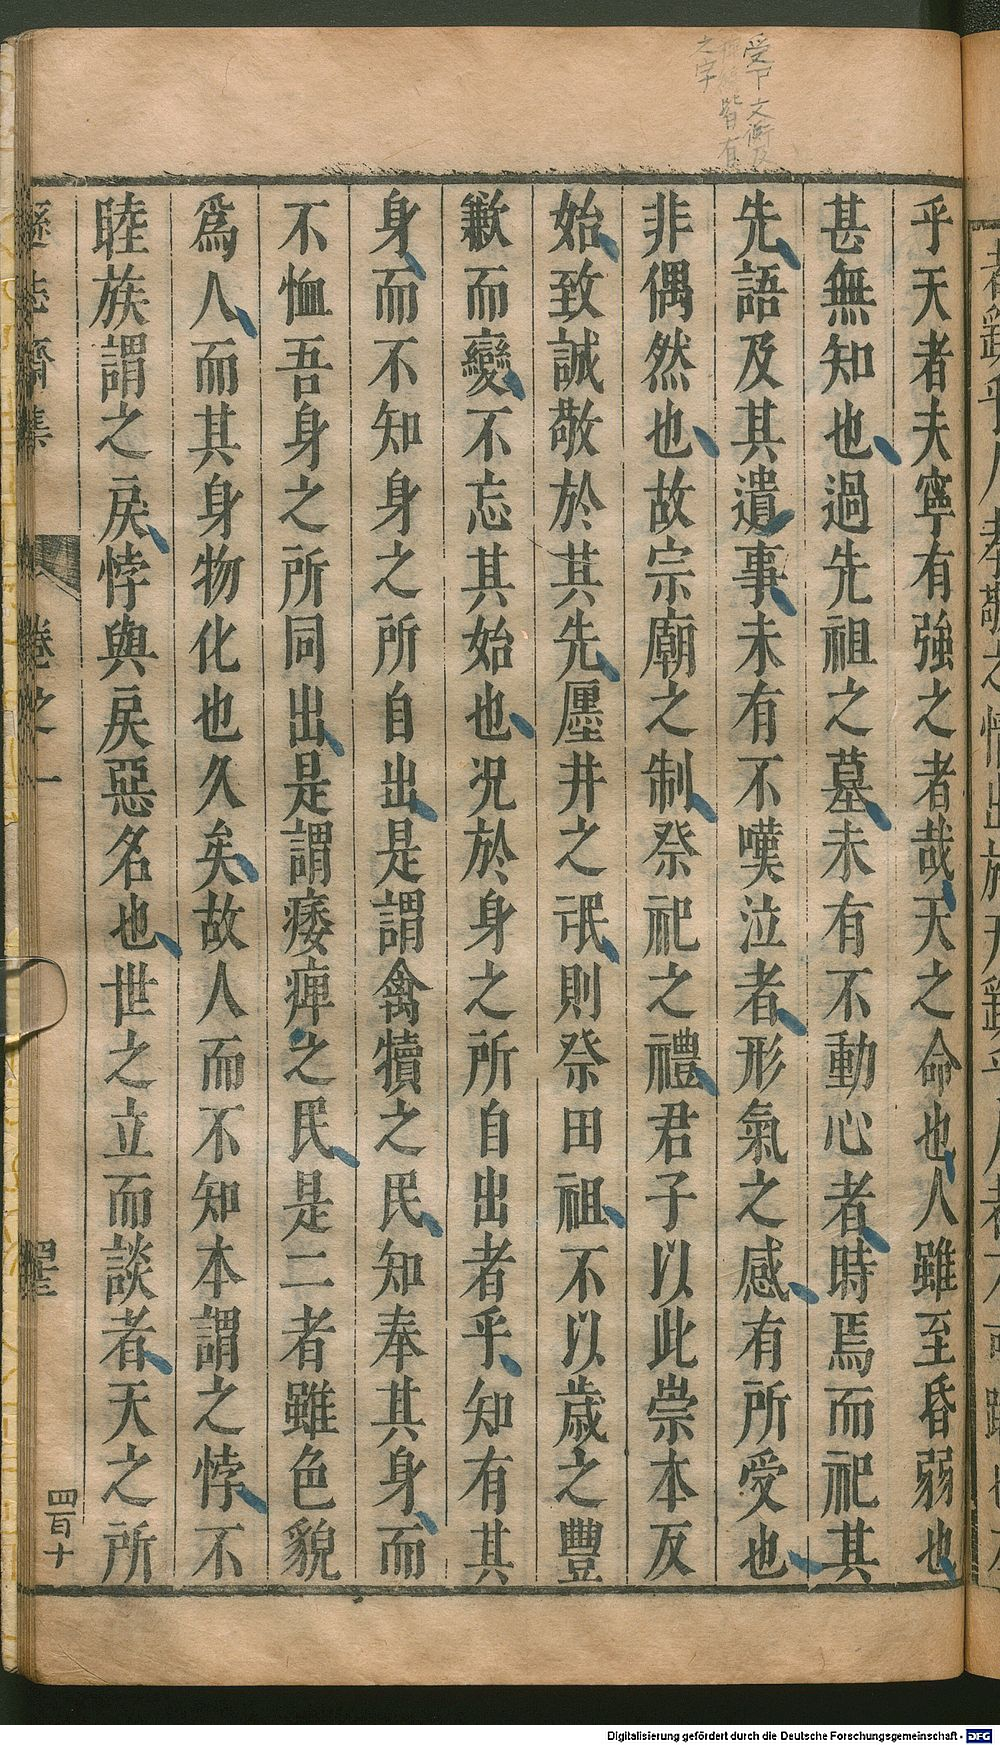 受下文衡及
皆有
之字
乎天者夫寧有強之者哉天之命也人雖至昏弱也
甚無知也過先祖之墓未有不動心者時焉而祀其
先語及其遺事未有不嘆泣者形氣之感有所受也
非偶然也故宗廟之制祭祀之禮君子以此崇本反
始致誠敬於其先廛井之氓則祭田祖不以歲之豐
歉而變不忘其始也況於身之所自出者乎知有其
身而不知身之所自出是謂禽犢之民知奉其身而
不恤吾身之所同出是謂痿痺之民是二者雖色貌
爲人而其身物化也久矣故人而不知本謂之悖不
睦族謂之戾悖與戾惡名也世之立而談者天之所
遜志齋集 卷之一
四百十
Digitalisierung gefördert durch die Deutsche Forschungsgemeinschaft - DFG